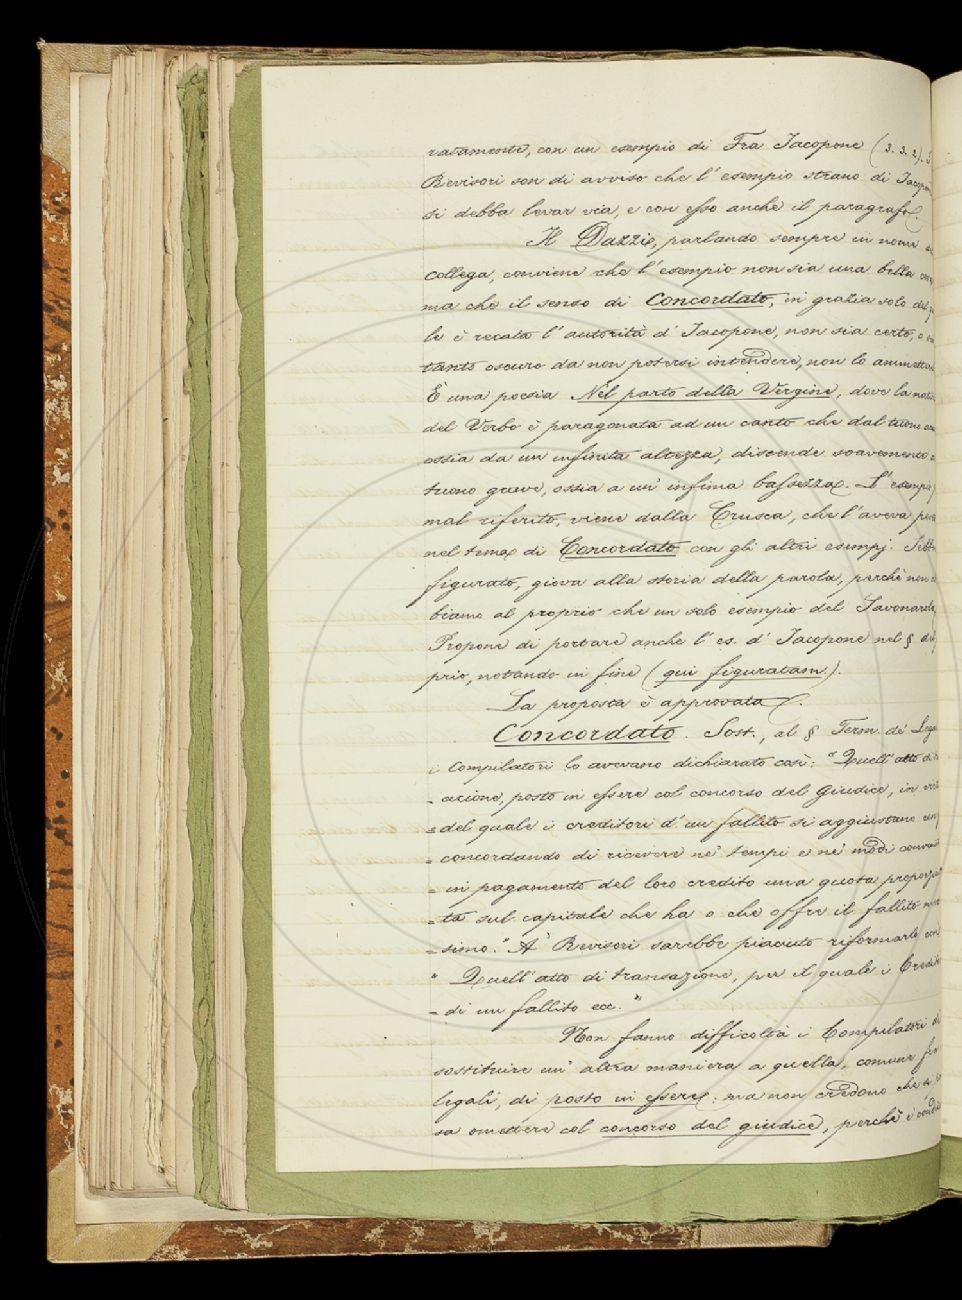 ratamente, con un esempio di Fra Jacopone (3. 3. 2).
Revisori son di avviso che l'esempio strano di Jacopone
si debba levar via, e con esso anche il paragrafo.
Il Dazzi, parlando sempre in nome
collega, conviene che l'esempio non sia una bella
ma che il senso di Concordato, in grazia solo del
le è recato l'autorità d'Jacopone, non sia certo, o
tanto oscuro da non potersi intendere, non lo ammette
È una poesia Nel parto della Vergine, dove la
del Verbo è paragonata ad un canto che dal tuono
ossia da un'infinita altezza, discende soavemente
tuono grave, ossia a un'infima bassezza. L'esempio
mal riferito, viene dalla Crusca, che l'aveva
nel tema di Concordato con gli altri esempj.
figurato, giova alla storia della parola, perchè non
biamo al proprio che un solo esempio del Savonarola,
Propone di portare anche l'es. d'Jacopone nel §
prio, notando in fine (qui figuratam.).
La proposta è approvata.
Concordato. Sost., al § Term. de' Leg
i Compilatori lo avevano dichiarato così: "Quell'atto di
= azione, posto in essere col concorso del giudice, in
= del quale i creditori d'un fallito si aggiustano
= concordando di ricevere ne' tempi e ne' modi
= in pagamento del loro credito una quota proporzio
= ta sul capitale che ha o che offre il fallito
= simo." A' Revisori sarebbe piaciuto riformarlo
" Quell'atto di transazione, per il quale i Credit
= di un fallito ecc."
Non fanno difficoltà i Compilatori
sostituire un'altra maniera a quella, comune
legali, di posto in essere: ma non credono che
sa omettere col concorso del giudice, perchè i